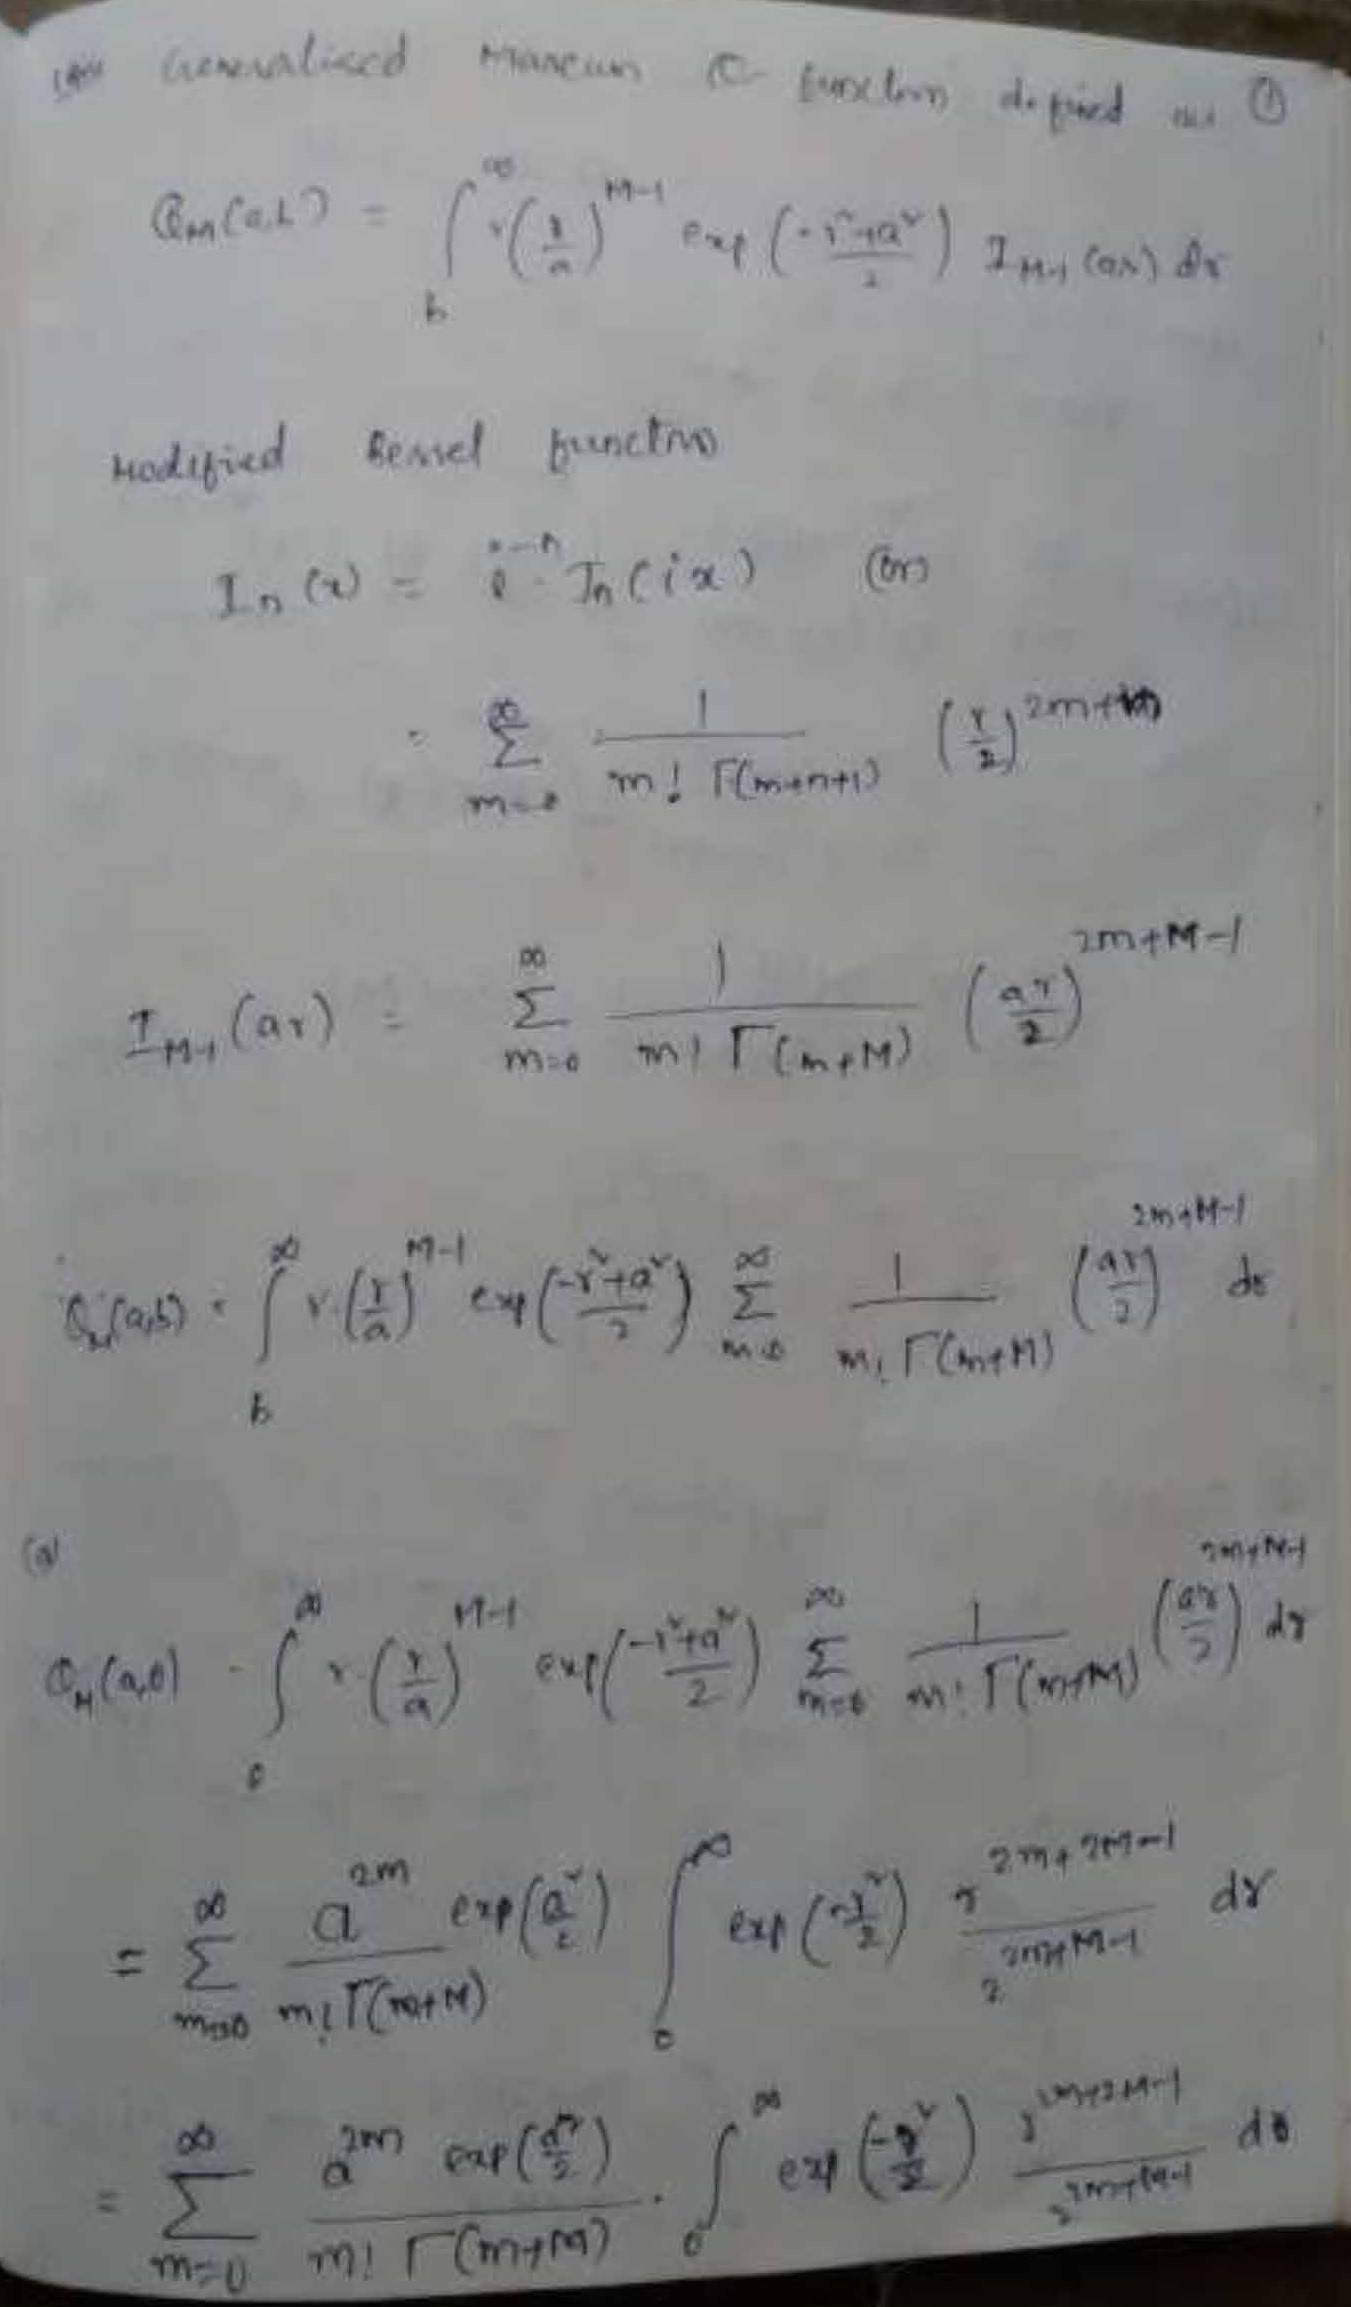 Generalised Marcum Q function defined as ①
Q_M(a,b) = ∫_b^∞ r(r/a)^{M-1} exp(-r²+a²/2) I_{M-1}(ar) dr
Modified Bessel function
I_n(x) = i^{-n} J_n(ix) (or)
= Σ_{m=0}^∞ 1/(m! Γ(m+n+1)) (x/2)^{2m+n}
I_{M-1}(ar) = Σ_{m=0}^∞ 1/(m! Γ(m+M)) (ar/2)^{2m+M-1}
Q_M(a,b) = ∫_b^∞ r·(r/a)^{M-1} exp(-r²+a²/2) Σ_{m=0}^∞ 1/(m! Γ(m+M)) (ar/2)^{2m+M-1} dr
(a)
Q_M(a,0) = ∫_0^∞ r·(r/a)^{M-1} exp(-r²+a²/2) Σ_{m=0}^∞ 1/(m! Γ(m+M)) (ar/2)^{2m+M-1} dr
= Σ_{m=0}^∞ a^{2m} exp(a²/2)/(m! Γ(m+M)) ∫_0^∞ exp(-r²/2) r^{2m+2M-1}/2^{2m+M-1} dr
= Σ_{m=0}^∞ a^{2m} exp(a²/2)/(m! Γ(m+M)) · ∫_0^∞ exp(-r²/2) r^{2m+2M-1}/2^{2m+M-1} dr